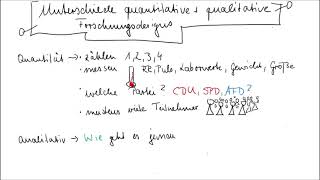 Unterschiede quantitative + qualitative
Forschungsdesigns
Quantität → • zählen 1, 2, 3, 4
• messen RR, Puls, Laborwerte, Gewicht, Größe
• welche Partei? CDU, SPD, AFD?
• meistens viele Teilnehmer
Qualitativ → Wie geht es jemand